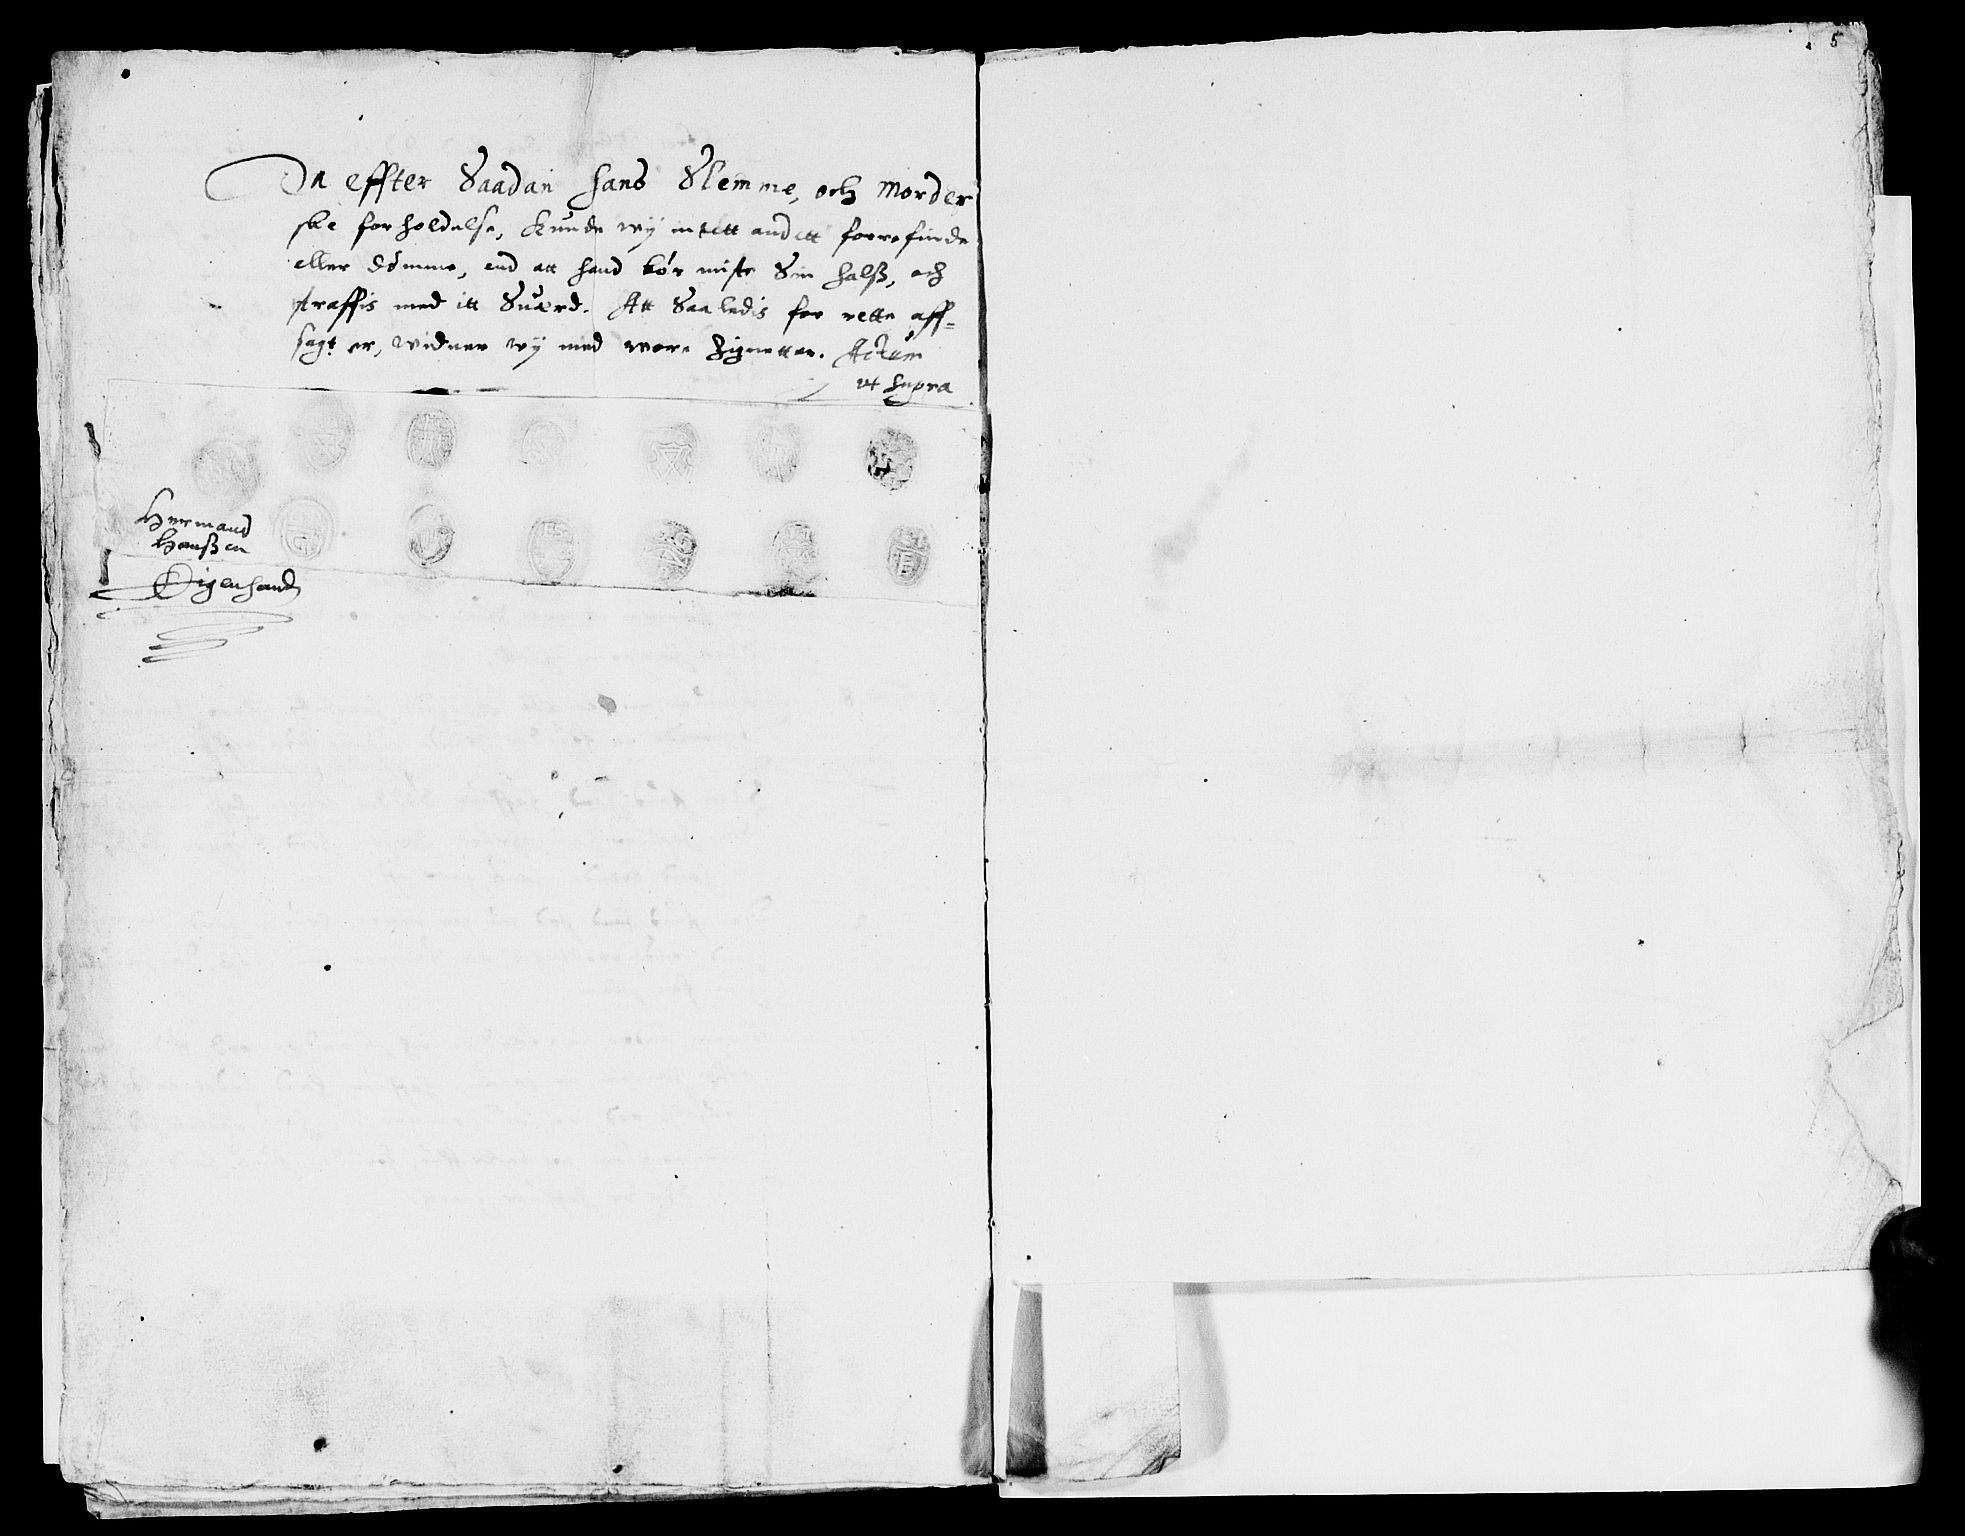 5
Da effter Saadan hans Slemme, och Morder
ske forholdelse, Kunde wy intett andett forrefinde
eller dömme, end att hand bör miste Sin halß, och
straffis med itt Suærd. Att Saaledis for rette aff=
sagt er, widner wy med wore Zignetter. Actum
ut supra
Hermand
Hanßen
Eigenhand